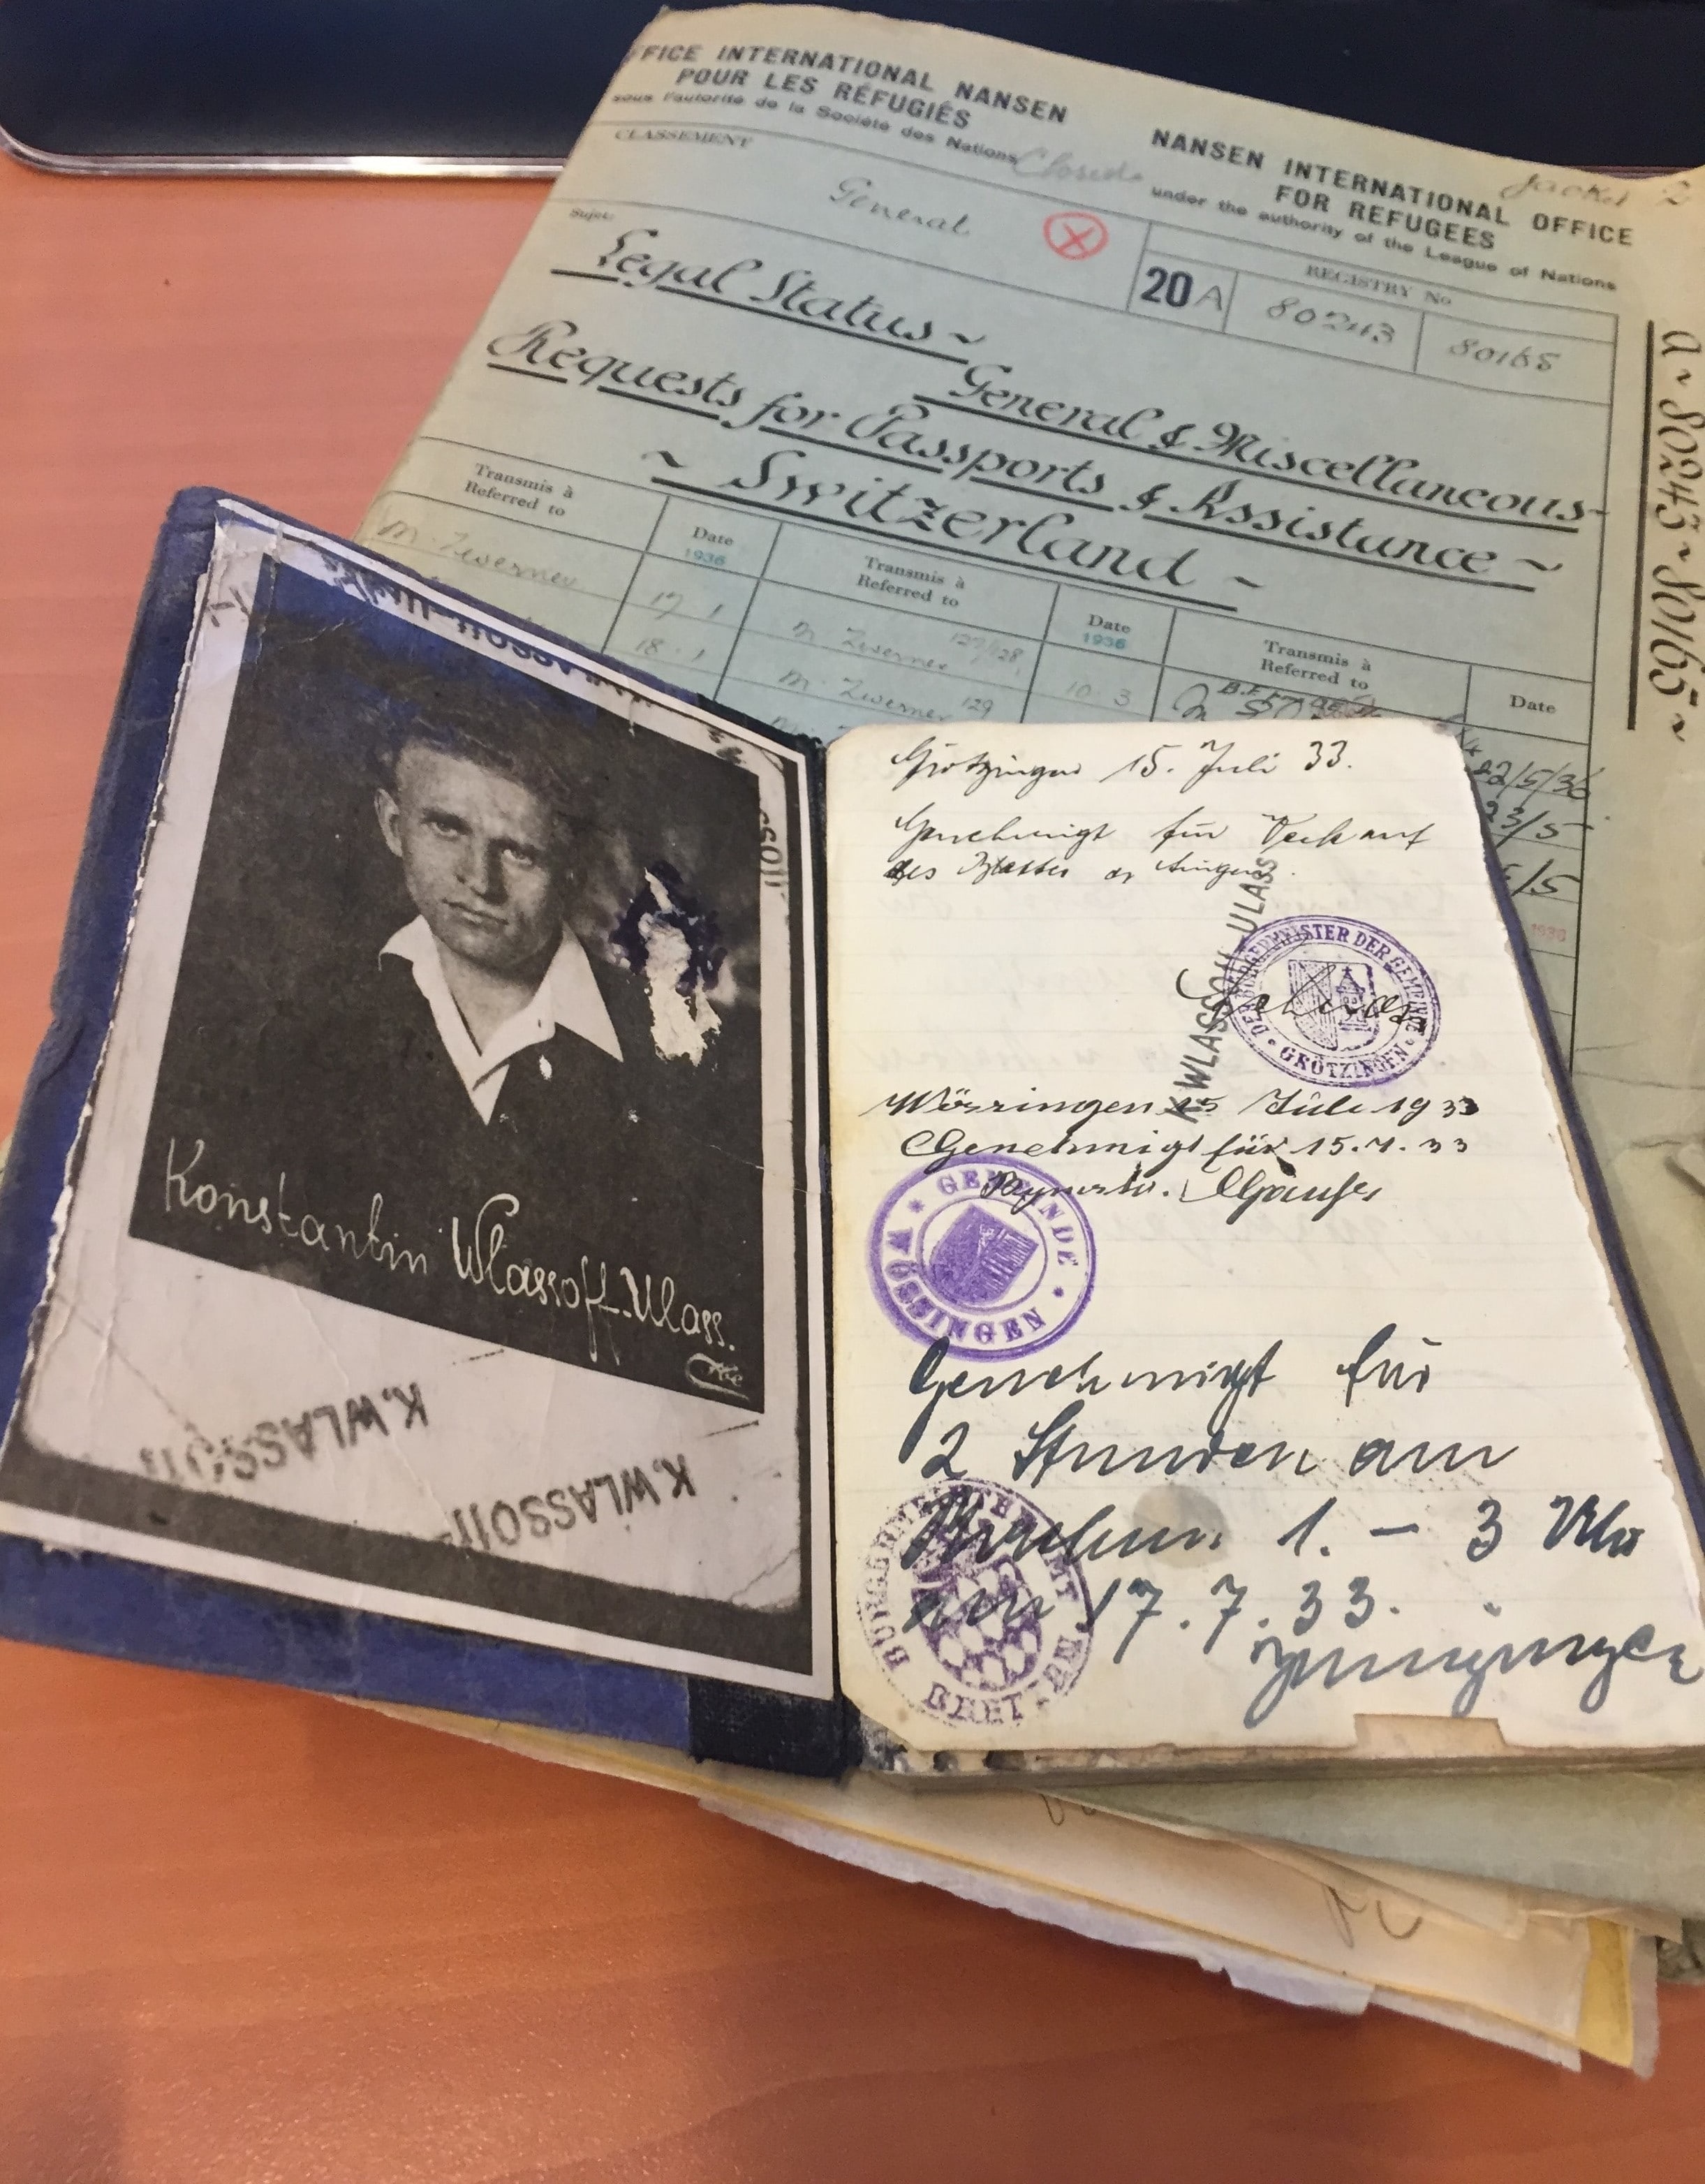 FICE INTERNATIONAL NANSEN
POUR LES RÉFUGIÉS
sous l'autorité de la Société des Nations
Closed
NANSEN INTERNATIONAL OFFICE
FOR REFUGEES
under the authority of the League of Nations
Jacket 2
CLASSEMENT
General
REGISTRY No
20 A
80243
80165
Sujet:
Legal Status ~
General & Miscellaneous
Requests for Passports & Assistance ~
~ Switzerland ~
a ~ 80243 ~ 80165 ~
Transmis à
Referred to
Date
1936
Transmis à
Referred to
Date
1936
Transmis à
Referred to
Date
M. Zwerner
17.1
18.1
M. Zwerner 127/128
M. Zwerner 129
10.3
22/5/36
23/5
/5
1936
Konstantin Wlassoff-Ulass.
K.WLASSOFF
K.WLASSOFF
Grötzingen 15. Juli 33.
Genehmigt für Verkauf
des
K WLASSOFF-ULASS
DER BÜRGERMEISTER DER GEMEINDE
GRÖTZINGEN
Wössingen 15 Juli 1933
Genehmigt für 15.7.33
GEMEINDE
WÖSSINGEN
Genehmigt für
2 Stunden am
1. – 3 Uhr
17.7.33.
BÜRGERMEISTERAMT
BRETTEN